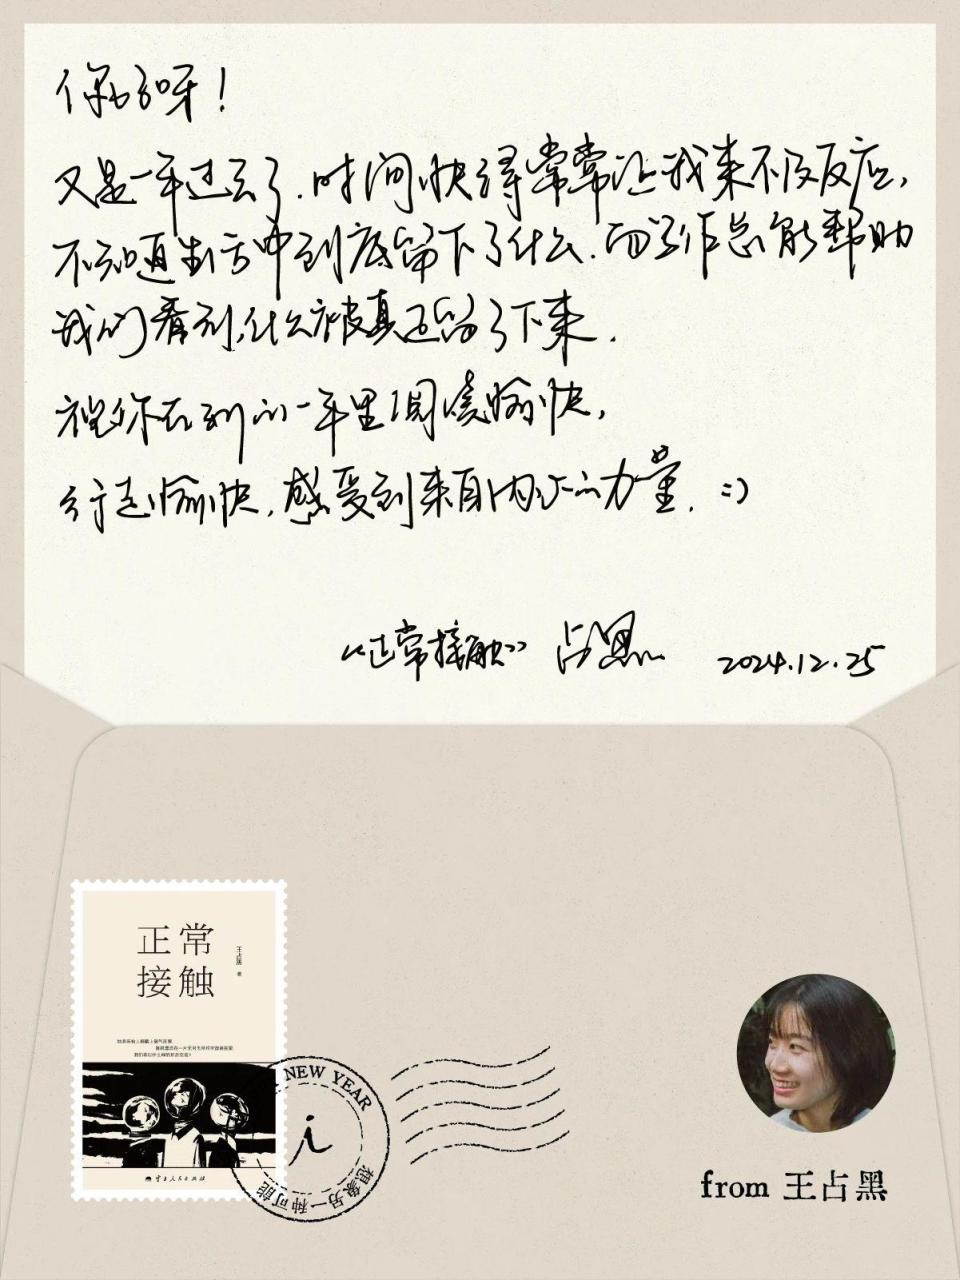 你好呀！
又是一年过去了.时间快得常常让我来不及反应,
不知道生活中到底留下了什么.而写作总能帮助
我们看到,什么被真正留了下来.
祝你在到的一年里阅读愉快,
行走愉快,感受到来自内心的力量. :)
《正常接触》 占黑 2024.12.25
正常
接触
王占黑 著
云南人民出版社
NEW YEAR
i
想象另一种可能
from 王占黑